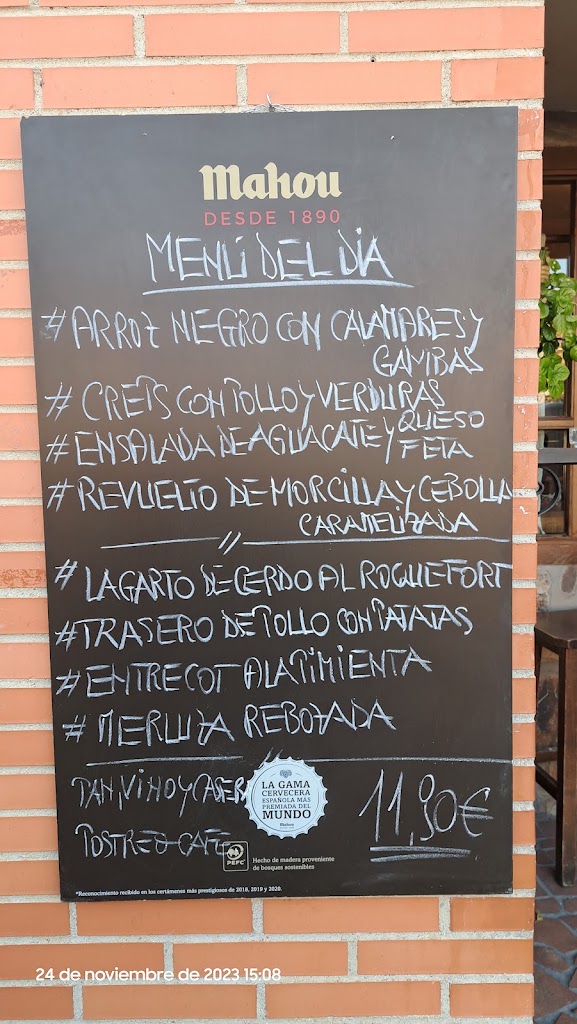 Mahou
DESDE 1890
MENÚ DEL DÍA
# ARROZ NEGRO CON CALAMARES Y
GAMBAS
# CREPS CON POLLO Y VERDURAS
# ENSALADA DE AGUACATE Y QUESO
FETA
# REVUELTO DE MORCILLA Y CEBOLLA
CARAMELIZADA
//
# LAGARTO DE CERDO AL ROQUEFORT
# TRASERO DE POLLO CON PATATAS
# ENTRECOT A LA PIMIENTA
# MERLUZA REBOZADA
PAN, VINO Y CASERA
POSTRE O CAFÉ
11,90€
LA GAMA
CERVECERA
ESPAÑOLA MÁS
PREMIADA DEL
MUNDO
Mahou
PEFC
Hecho de madera proveniente
de bosques sostenibles
*Reconocimiento recibido en los certámenes más prestigiosos de 2018, 2019 y 2020.
24 de noviembre de 2023 15:08